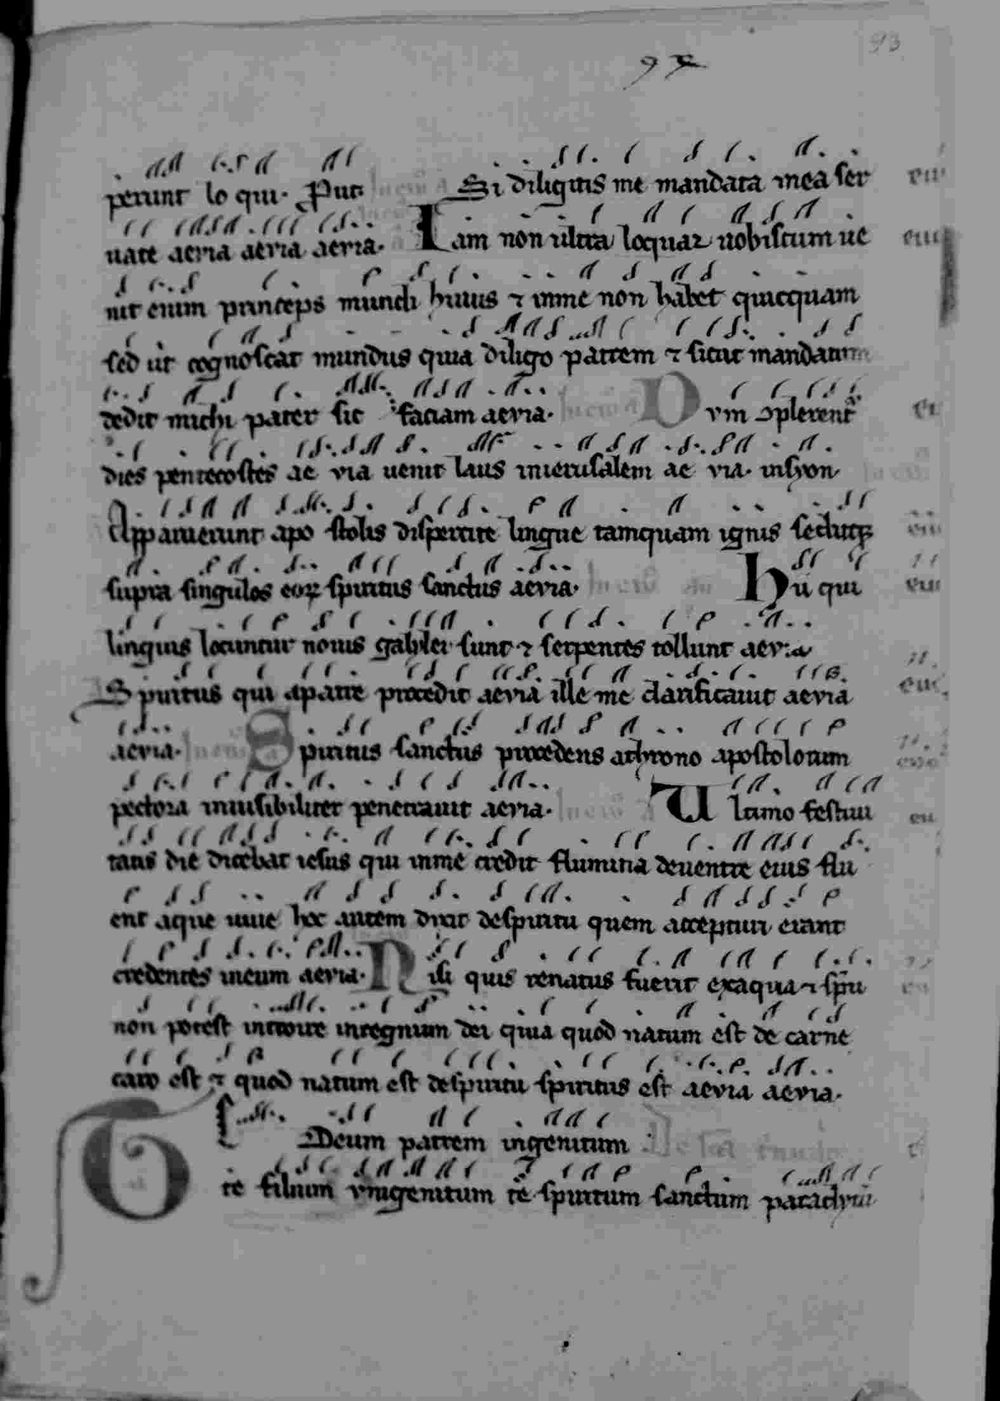 93
perunt lo qui. Si diligitis me mandata mea ser
uate aeuia aeuia aeuia. Iam non ultra loquar uobiscum ue
nit enim princeps mundi huius ⁊ inme non habet quicquam
sed ut cognoscat mundus quia diligo patrem ⁊ sicut mandatum
dedit michi pater sic faciam aeuia. Dum ↄplerent᷑
dies pentecostes ae via uenit laus inierusalem ae via. insyon
Apparuerunt apo stolis dispertite lingue tamquam ignis seditqꝫ
supra singulos eoꝝ spiritus sanctus aeuia. Hii qui
linguis locuntur nouis galylei sunt ⁊ serpentes tollunt aeuia
Spiritus qui apatre procedit aeuia ille me clarificauit aeuia
aeuia. Spiritus sanctus procedens athrono apostolorum
pectora inuisibiliter penetrauit aeuia. Ultimo festiui
tatis die dicebat iesus qui inme credit flumina deuentre eius flu
ent aque uiue hoc autem dixit despiritu quem accepturi erant
credentes ineum aeuia. Nisi quis renatus fuerit exaqua ⁊ spū
non potest introire inregnum dei quia quod natum est de carne
caro est ⁊ quod natum est despiritu spiritus est aeuia aeuia.
Deum patrem ingenitum
Te filium vnigenitum te spiritum sanctum paraclytū